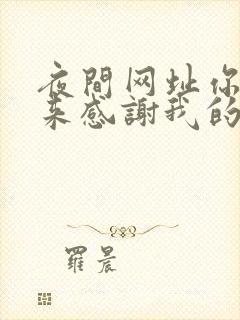 夜間网址你
来感謝我的
羅晨